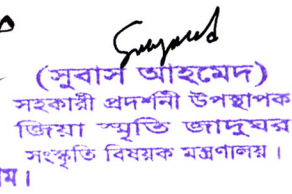 (সুবাস আহমেদ)
সহকারী প্রদর্শনী উপস্থাপক
জিয়া স্মৃতি জাদুঘর
সংস্কৃতি বিষয়ক মন্ত্রণালয়।